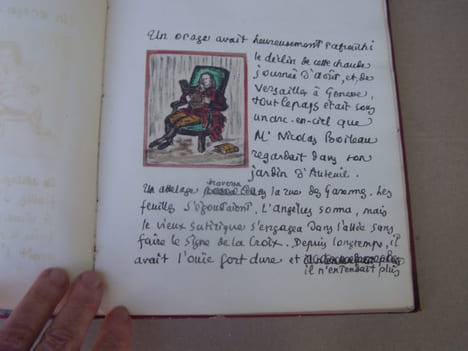 Un orage avait heureusement rafraîchi
le déclin de cette chaude
journée d'août, et, de
Versailles à Genève,
tout le pays était sous
un arc-en-ciel que
Mr Nicolas Boileau
regardait dans son
jardin d'Auteuil.
Un attelage traversa la rue des Garennes. Les
feuilles s'égouttaient. L'angélus sonna, mais
le vieux satirique s'engagea dans l'allée sans
faire le signe de la Croix. Depuis longtemps, il
avait l'ouïe fort dure et
il n'entendait plus